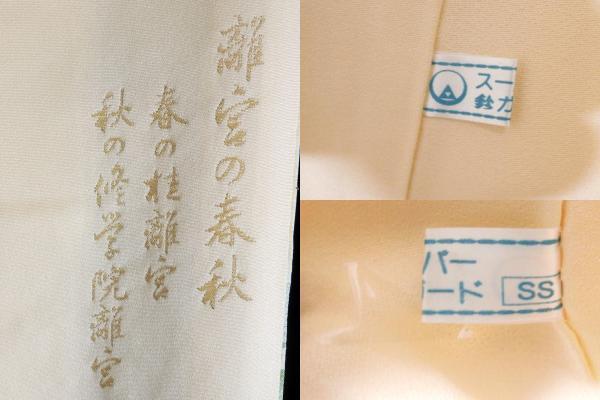 離宮の春秋
春の桂離宮
秋の修学院離宮
スー
鈴カ
パー
ード
SS